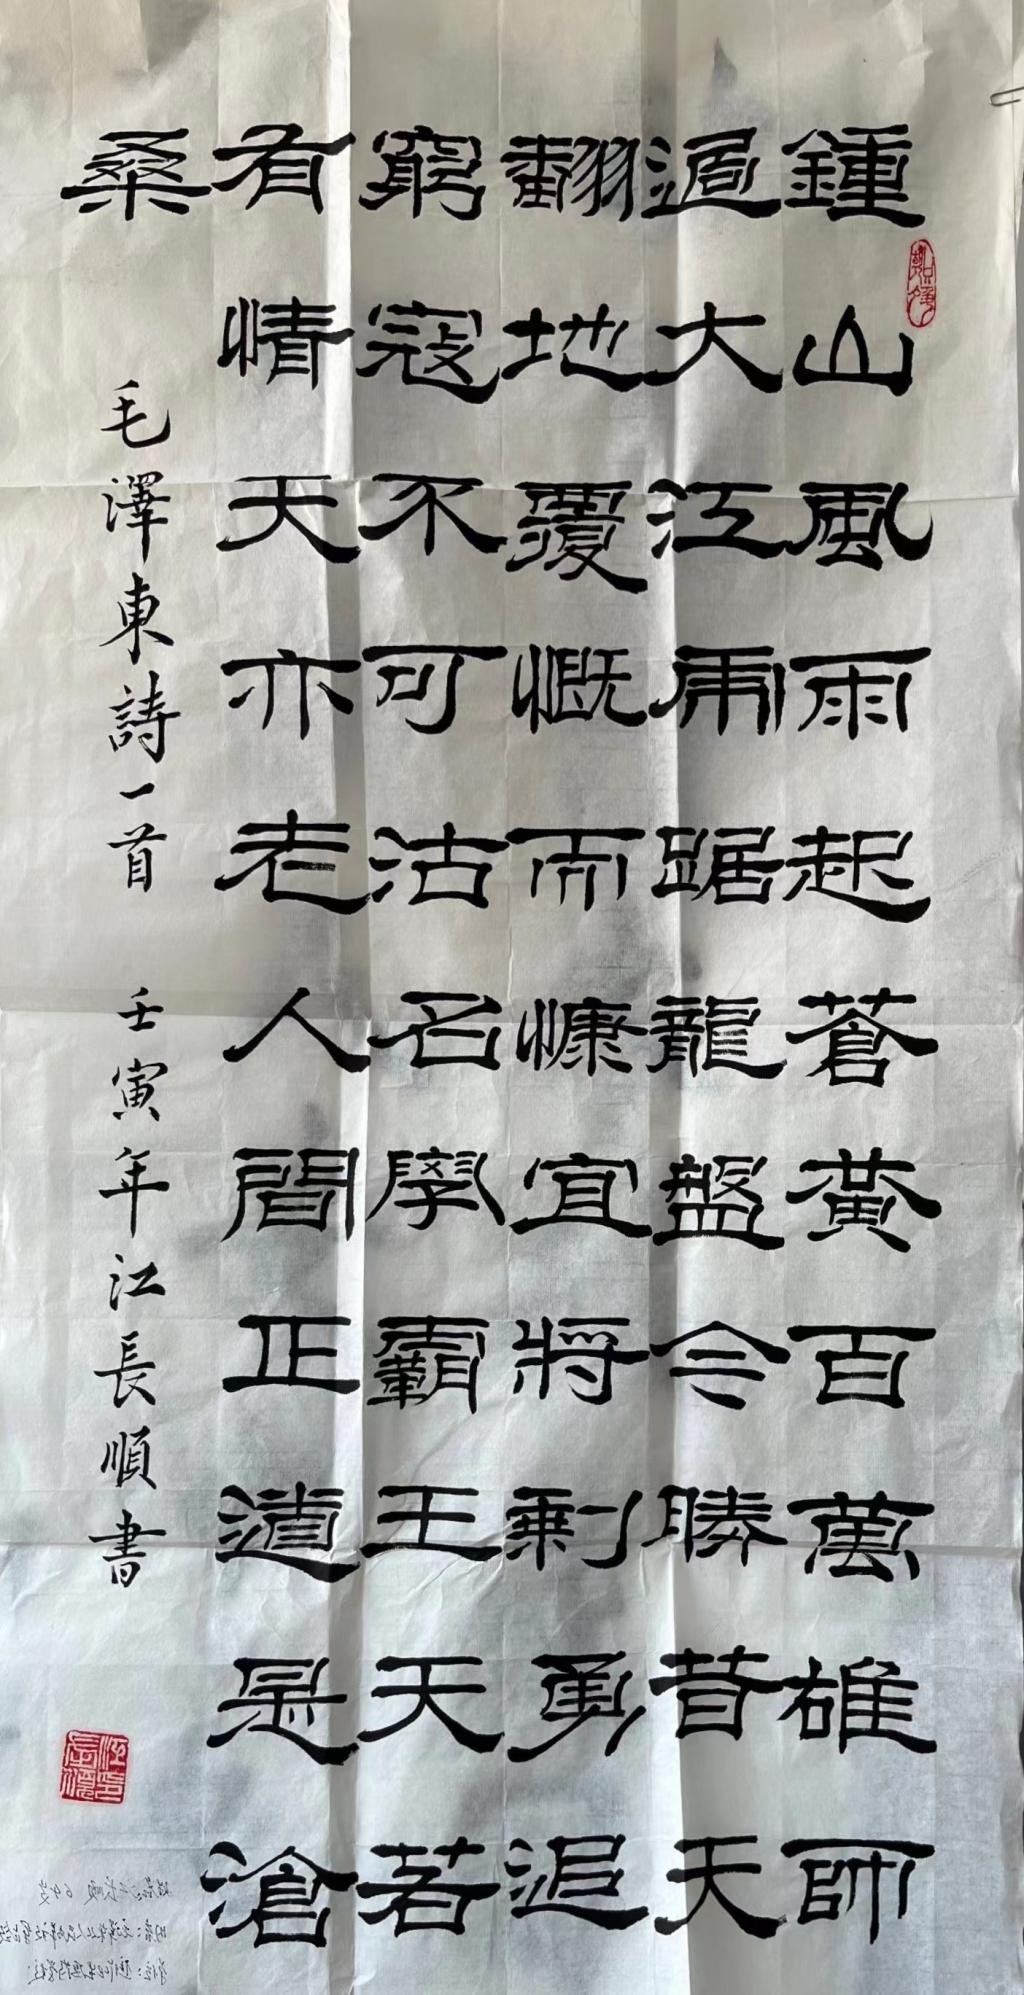 鍾山風雨起蒼黃百萬雄師
過大江虎踞龍盤今勝昔天
翻地覆慨而慷宜將剩勇追
窮寇不可沽名學霸王天若
有情天亦老人間正道是滄
桑
毛澤東詩一首 壬寅年江長順書